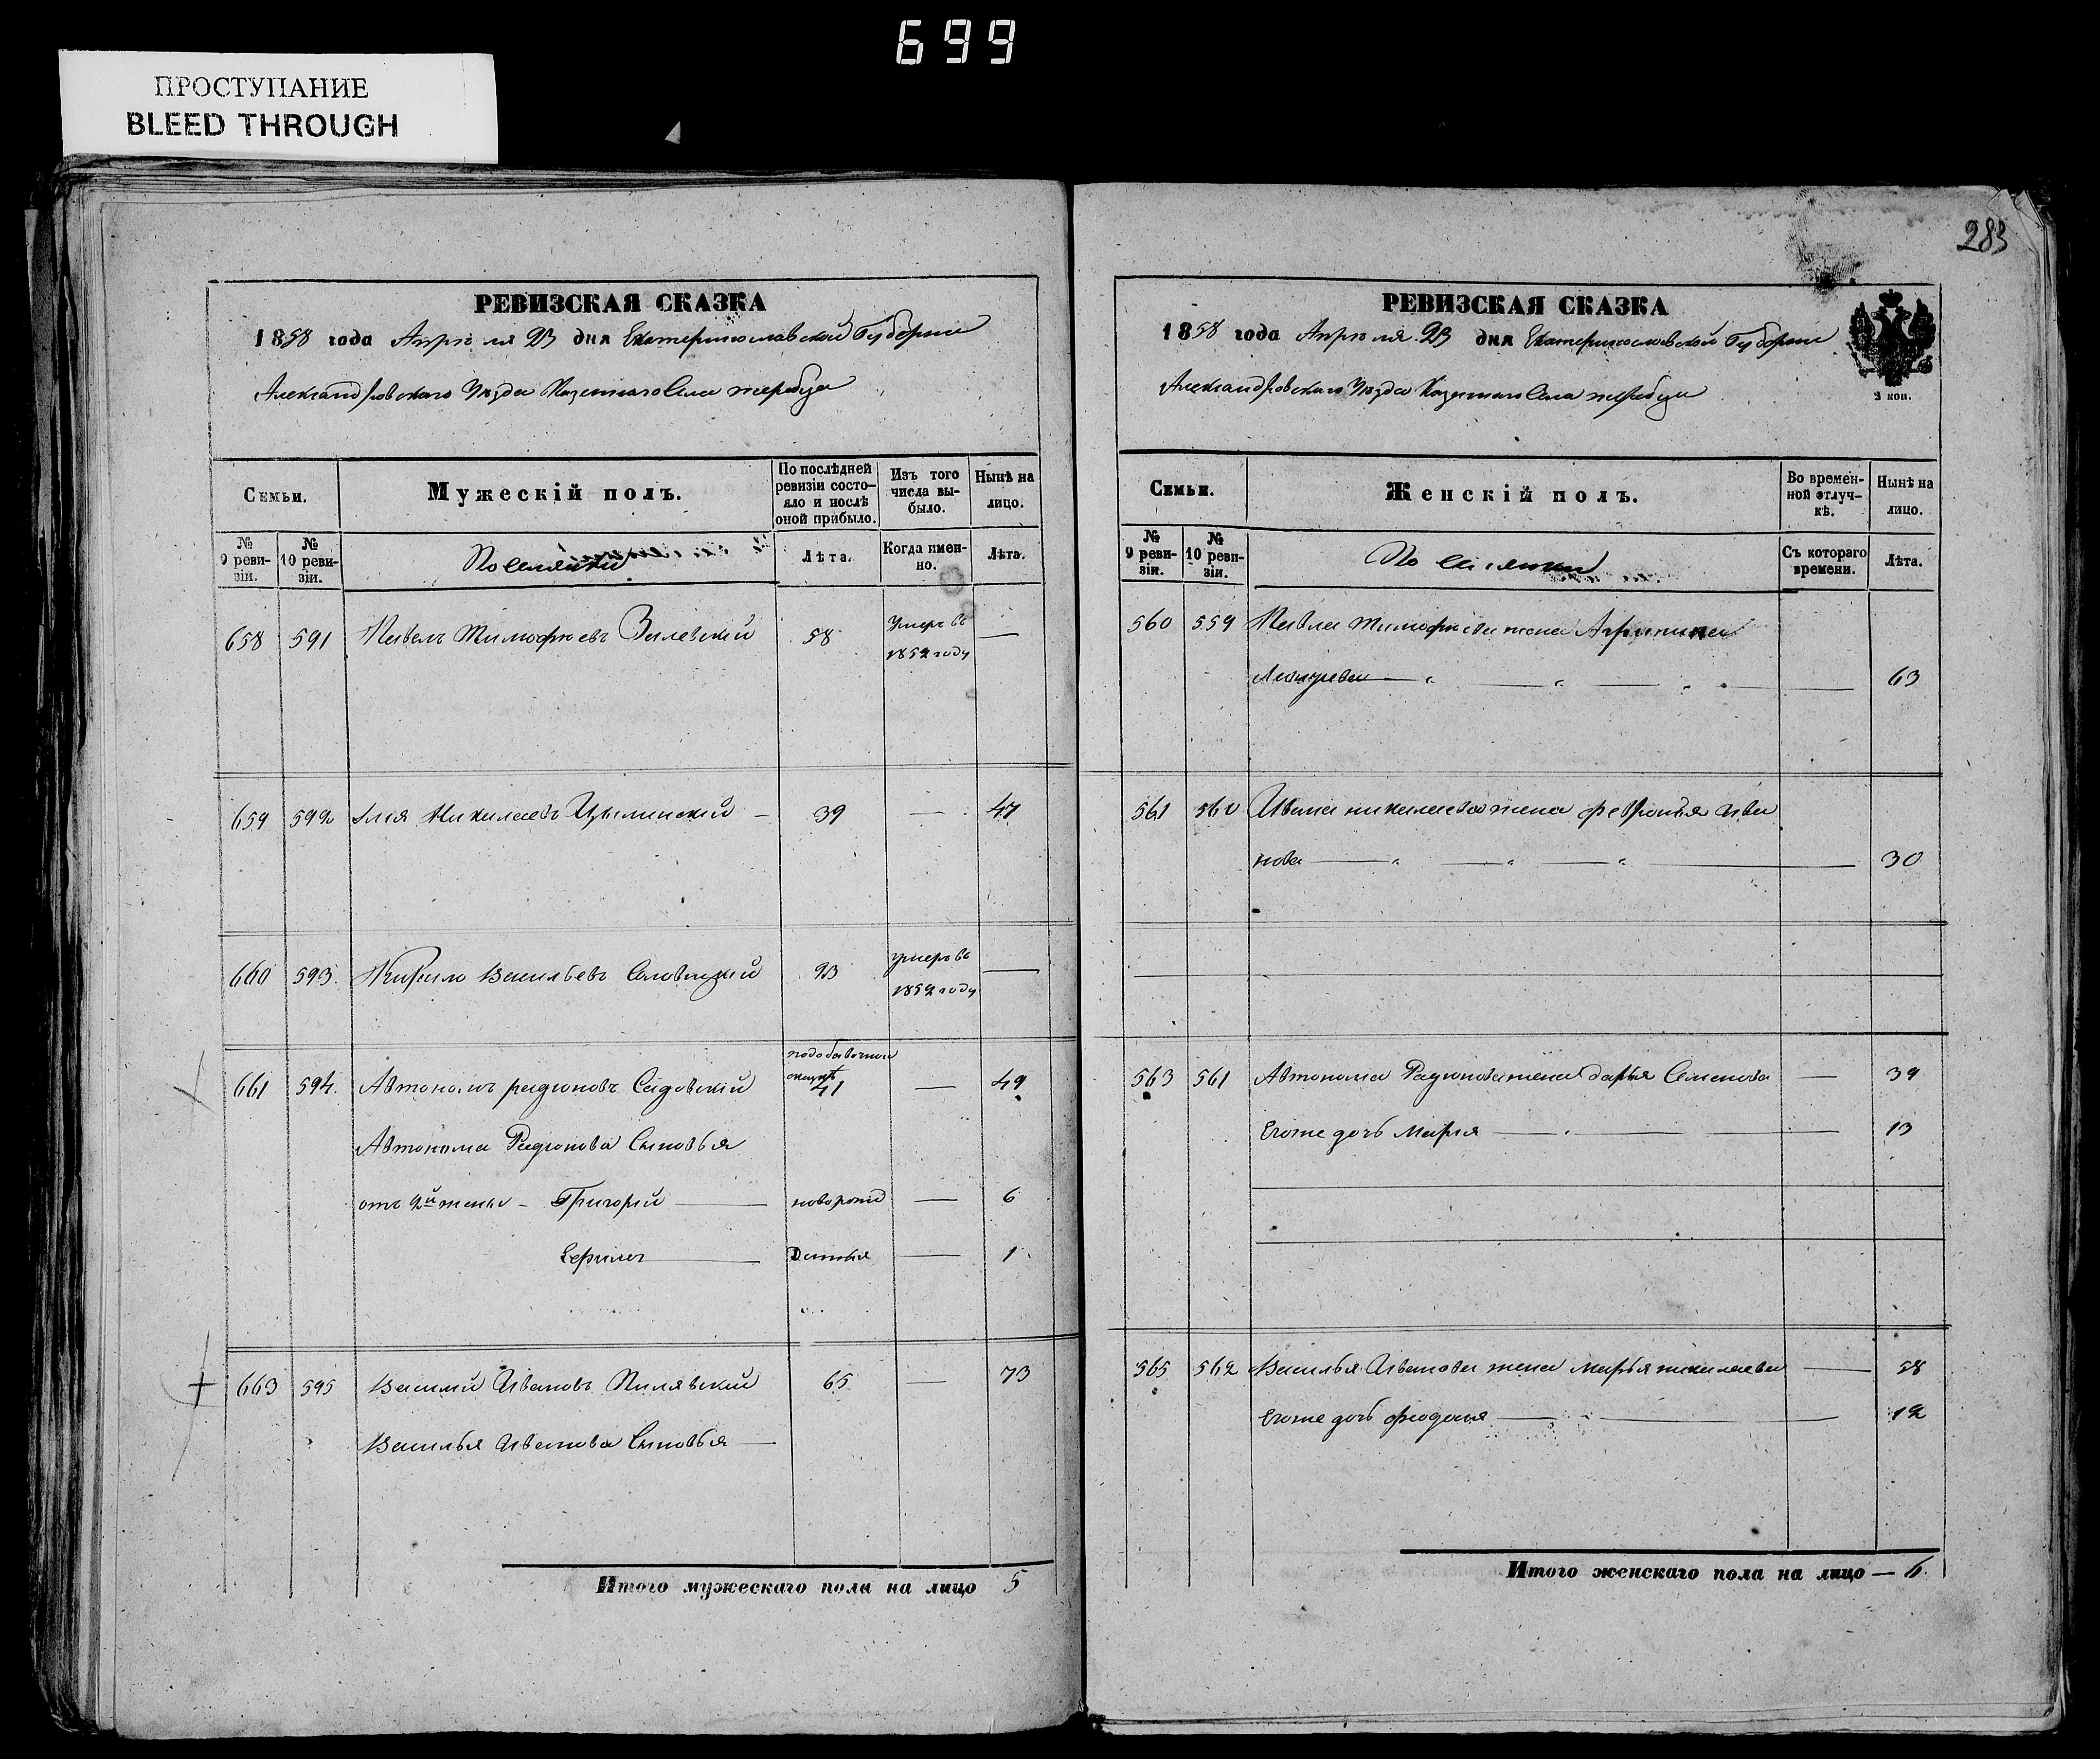 699
ПРОСТУПАНИЕ
BLEED THROUGH
РЕВИЗСКАЯ СКАЗКА
1858 года Апреля 23 дня Екатеринославской Губернии
Александровскаго Уезда Казеннаго Села Жеребца
Семьи.
Мужескій полъ.
По послѣдней ревизіи состояло и послѣ оной прибыло.
Изъ того числа выбыло.
Нынѣ на лицо.
№ 9 ревизіи.
№ 10 ревизіи.
Поселяни
Лѣта.
Когда именно.
Лѣта.
658 591 Павелъ Тимофѣевъ 58 Умеръ въ 1852 году —
659 592 Николаевъ — 39 — 47
660 593. Кирило Васильевъ 23 умеръ въ 1852 году —
661 594. Автономъ Радионовъ Садовскій 41 — 49
Автонома Радионова Сыновья
отъ 2й жены - Григорій — новорожд — 6
— — 1
663 595 Василий Ивановъ Пилявский 65 — 73
Василья Иванова Сыновья —
Итого мужескаго пола на лицо 5
283
РЕВИЗСКАЯ СКАЗКА
1858 года Апреля 23 дня Екатеринославской Губернии
Александровскаго Уезда Казеннаго Села Жеребца
2 коп.
Семьи.
Женскій полъ.
Во временной отлучкѣ.
Нынѣ на лицо.
№ 9 ревизіи.
№ 10 ревизіи.
Поселянки
Съ котораго времени.
Лѣта.
560 559 Павла Тимофѣева жена
— " — " — " — 63
561 560 Ивана Николаева жена Февронья Ива
нова — " — " — " — 30
563 561 Автонома Радионова жена Дарья Семенова — 39
Егоже дочь Марья — — 13
565 562 Василья Иванова жена Марья Николаева — 58
Егоже дочь Феодосия — — 12
Итого женскаго пола на лицо — 6.